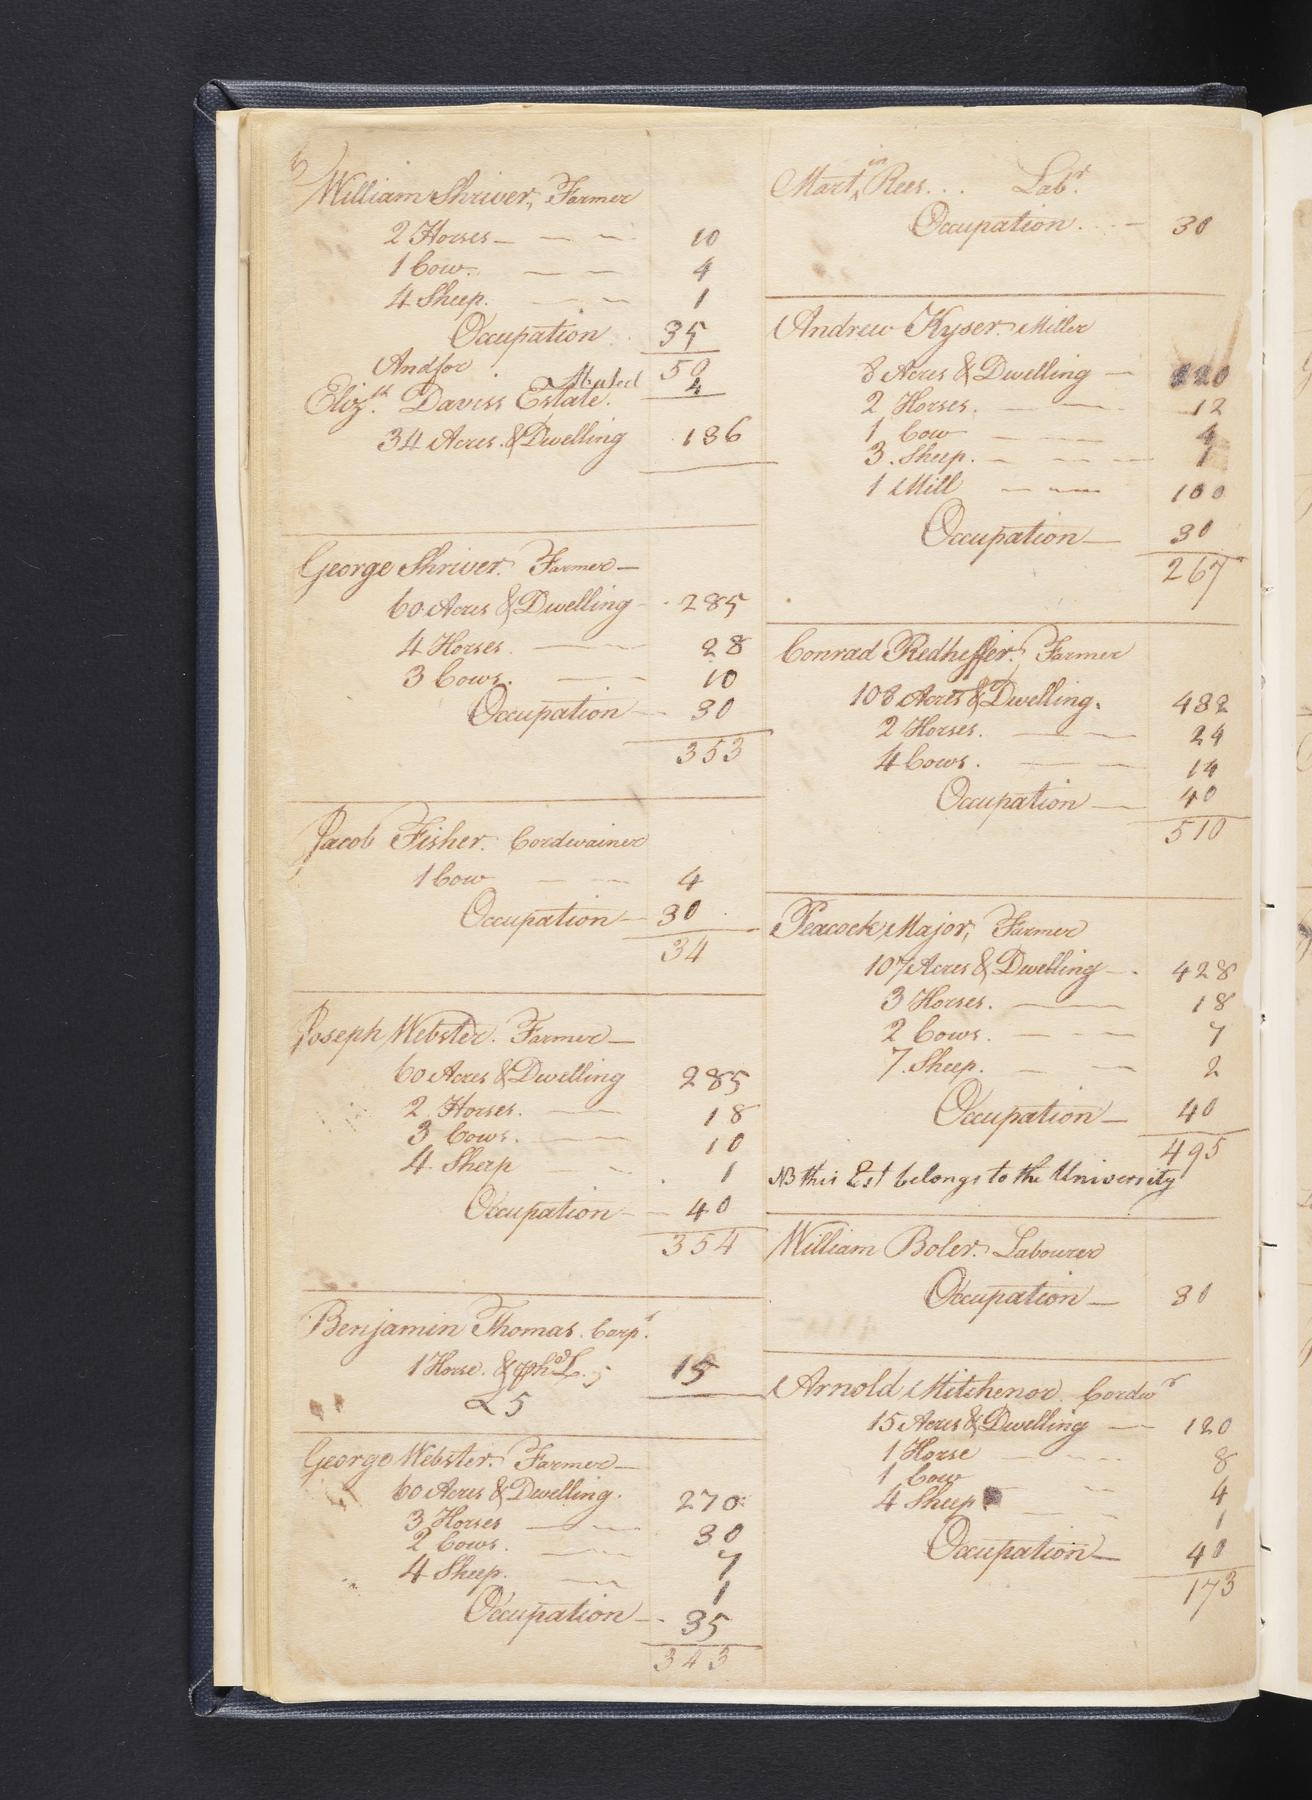 William Shriver, Farmer
2 Horses 10
1 Cow 4
4 Sheep. 1
Occupation 35
And for 50
Abated 4
Eliz.th Daviss Estate.
34 Acres. & Dwelling 136
George Shriver. Farmer
60 Acres & Dwelling 285
4 Horses. 28
3 Cows. 10
Occupation 30
353
Jacob Fisher. Cordwainer
1 Cow 4
Occupation 30
34
Joseph Webster. Farmer
60 Acres & Dwelling 285
2 Horses. 18
3 Cows. 10
4 Sheep 1
Occupation 40
354
Benjamin Thomas. Carpr.
1 Horse. & 15
£5
George Webster. Farmer
60 Acres & Dwelling. 270
3 Horses 30
2 Cows. 7
4 Sheep. 1
Occupation 35
343
Martin Rees... Labr.
Occupation... 30
Andrew Kyser. Miller
8 Acres & Dwelling 120
2 Horses. 12
1 Cow 4
3. Sheep. 1
1 Mill 100
Occupation 30
267
Conrad Redheffer. Farmer
108 Acres & Dwelling. 432
2 Horses. 24
4 Cows. 14
Occupation 40
510
Peacock Major, Farmer
107 Acres & Dwelling 428
3 Horses. 18
2 Cows. 7
7. Sheep. 2
Occupation 40
495
NB this Est belongs to the University
William Boler. Labourer
Occupation 30
Arnold Mitchenor Cordwr
15 Acres & Dwelling 120
1 Horse 8
1 Cow 4
4 Sheep 1
Occupation 40
173